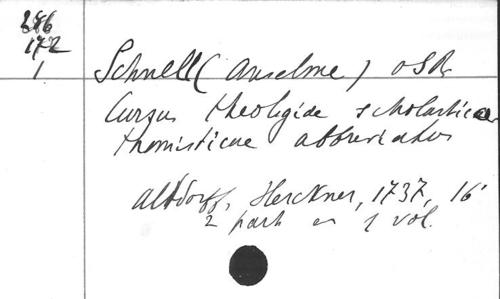 286
172
1
Schnell (Anselme) OSB
Cursus theologiae scholasticae
thomisticae abbreviatus
Altdorff, Herckner, 1737, 16°
2 part en 1 vol.